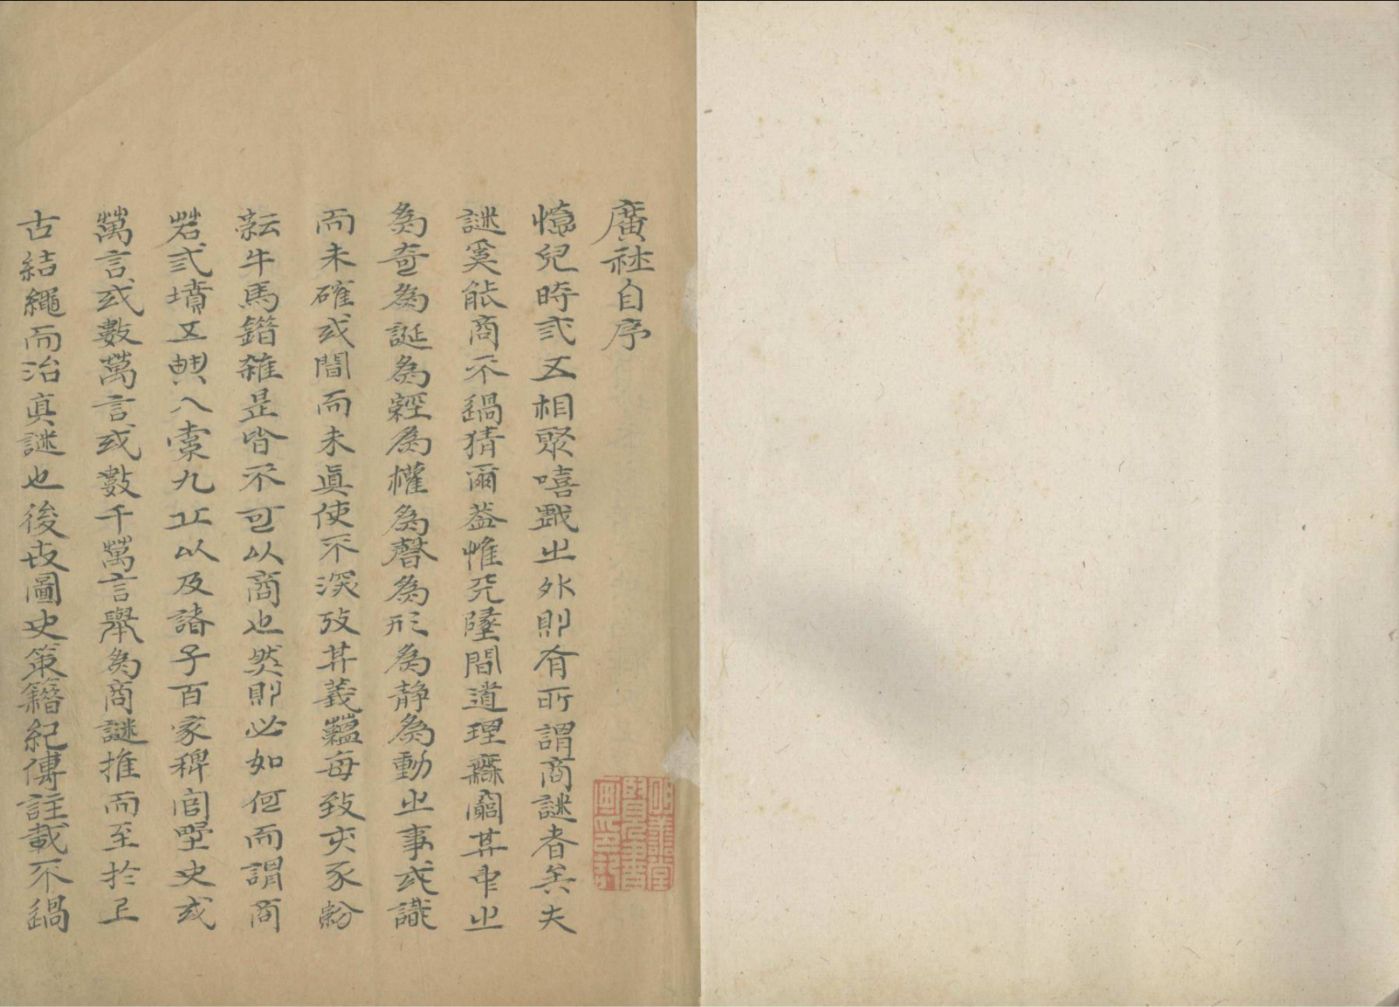 廣社自序
憶兒時弍五相聚嘻戲㞢外則有所謂商謎者矣夫
謎奚能商不過猜爾葢惟天墬間道理無窮其中㞢
為奇為誕為經為權為聲為形為靜為動㞢事或識
而未確或聞而未真使不深攷其義蘊每致亥豕紛
紜牛馬錯雜是皆不可以商也然則必如何而謂商
若弎墳五典八索九丘以及諸子百家稗官野史或
萬言或數萬言或數千萬言舉為商謎推而至於上
古結繩而治真謎也後世圖史策籍紀傳註載不過